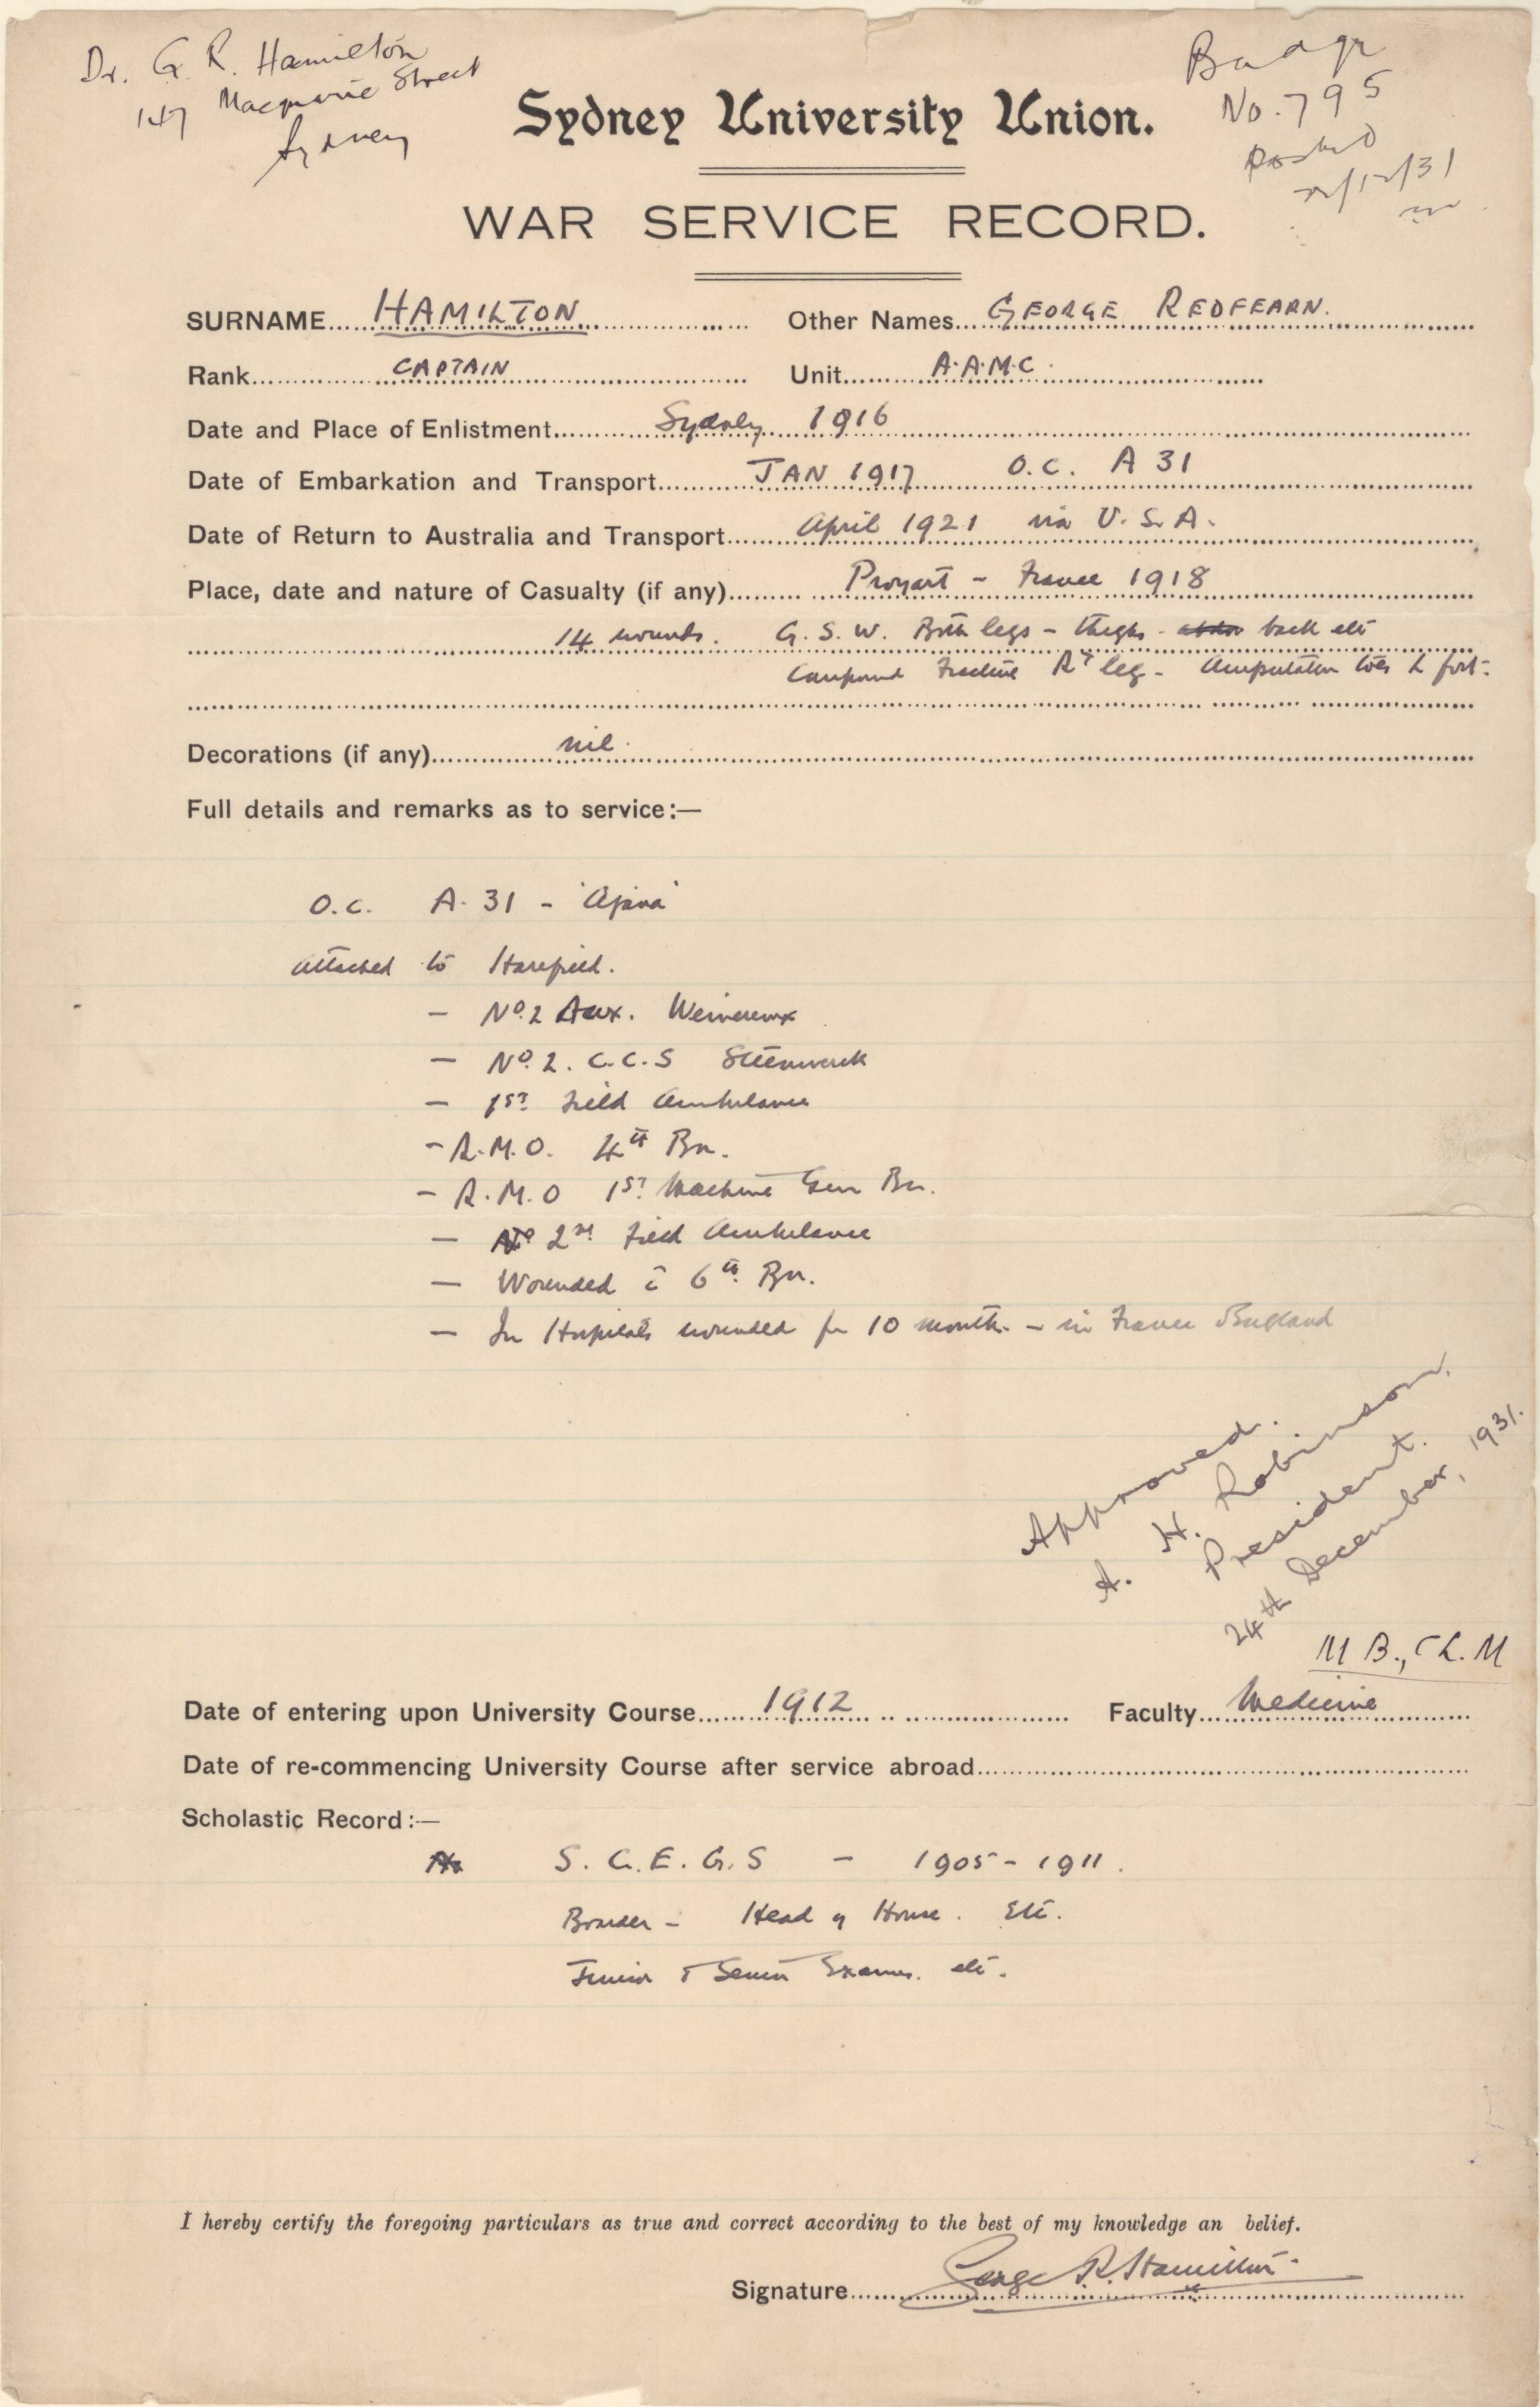 Dr. G. R. Hamilton
147 Macquarie Street
Sydney
Badge
No. 795
Posted
/12/31
Sydney University Union.
WAR SERVICE RECORD.
SURNAME HAMILTON Other Names GEORGE REDFEARN.
Rank CAPTAIN Unit A.A.M.C.
Date and Place of Enlistment Sydney 1916
Date of Embarkation and Transport JAN 1917 O.C. A 31
Date of Return to Australia and Transport April 1921 via U.S.A.
Place, date and nature of Casualty (if any) Proyart - France 1918
14 wounds. G.S.W. Both legs - thighs - back etc
Compound Fracture Rt leg - Amputation toes L foot -
Decorations (if any) nil.
Full details and remarks as to service:—
O.C. A. 31 - 'Ajana'
Attached to Harefield.
- No. 2 Aux. Weimereux
- No. 2. C.C.S Steenwerck
- 1st Field Ambulance
- R.M.O. 4th Bn.
- R.M.O 1st Machine Gun Bn.
- 2nd Field Ambulance
- Wounded c̄ 6th Bn.
- In Hospitals wounded for 10 months - in France England
Approved.
A. H. Robinson.
President.
24th December, 1931.
M B., Ch. M
Date of entering upon University Course 1912 Faculty Medicine
Date of re-commencing University Course after service abroad
Scholastic Record:—
S.C.E.G.S - 1905 - 1911.
Boarder - Head of House. Etc.
Junior & Senior Exams. etc.
I hereby certify the foregoing particulars as true and correct according to the best of my knowledge an belief.
Signature George R. Hamilton